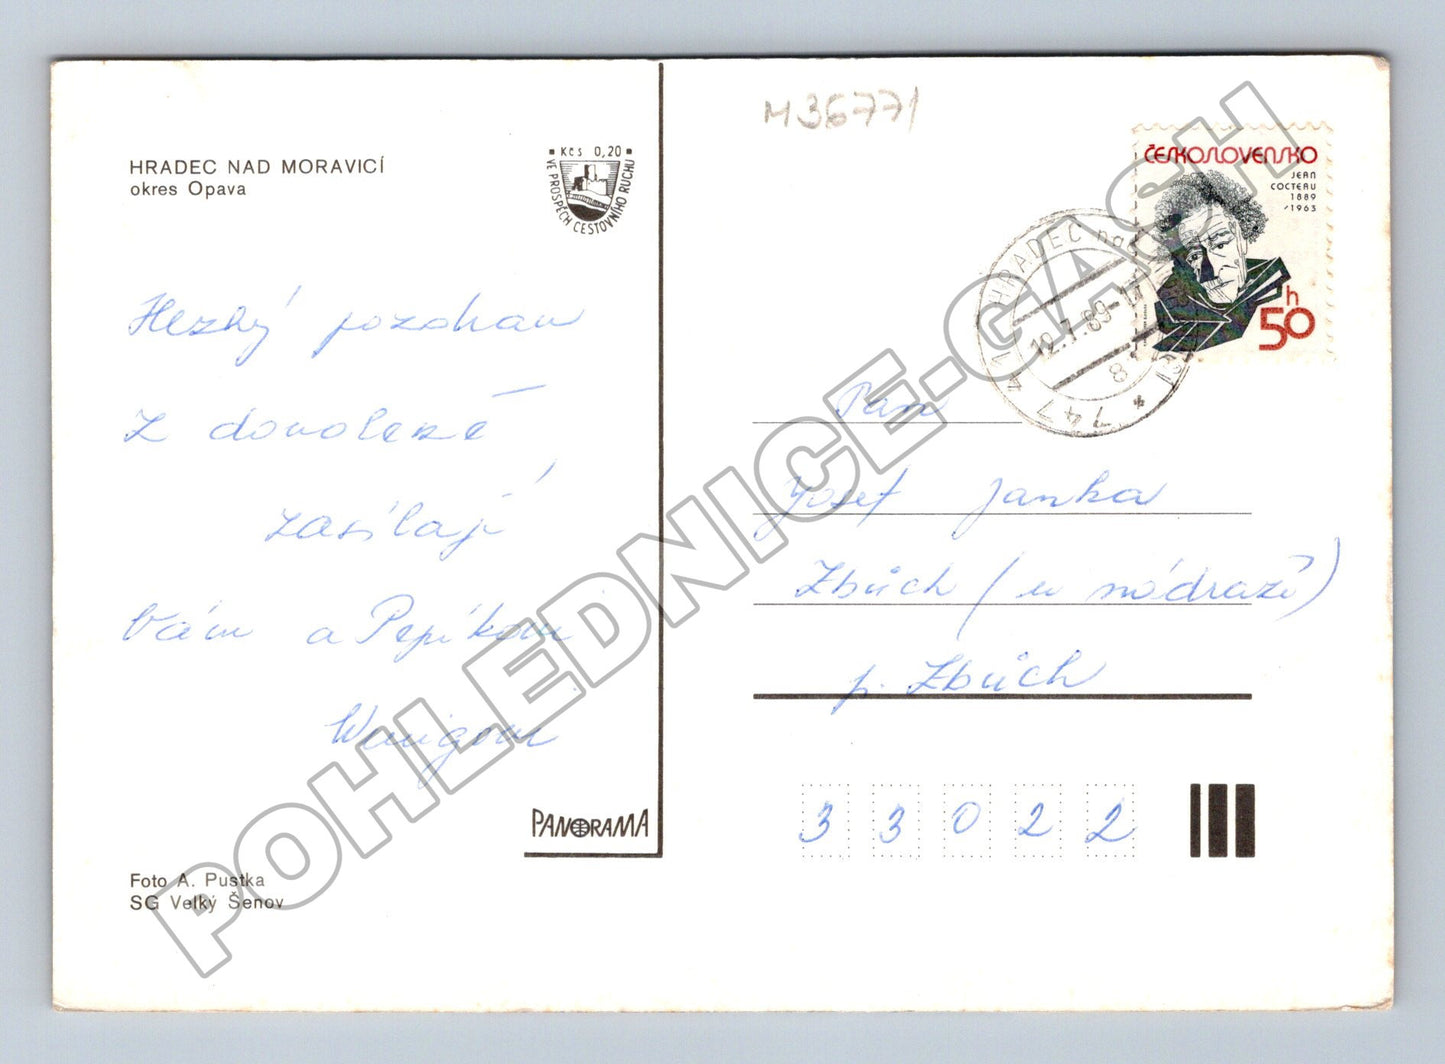 HRADEC NAD MORAVICÍ
okres Opava
Kčs 0,20
VE PROSPĚCH CESTOVNÍHO RUCHU
Hezký pozdrav
z dovolené
zasílají
Vám a Pepíkovi
PANORAMA
Foto A. Pustka
SG Velký Šenov
M 36771
ČESKOSLOVENSKO
JEAN
COCTEAU
1889
/1963
50 h
HRADEC nad
12.7.89-17
8
747 41
Pan
Josef Janka
Zbůch (u nádraží)
p. Zbůch
33022
POHLEDNICE.GASH